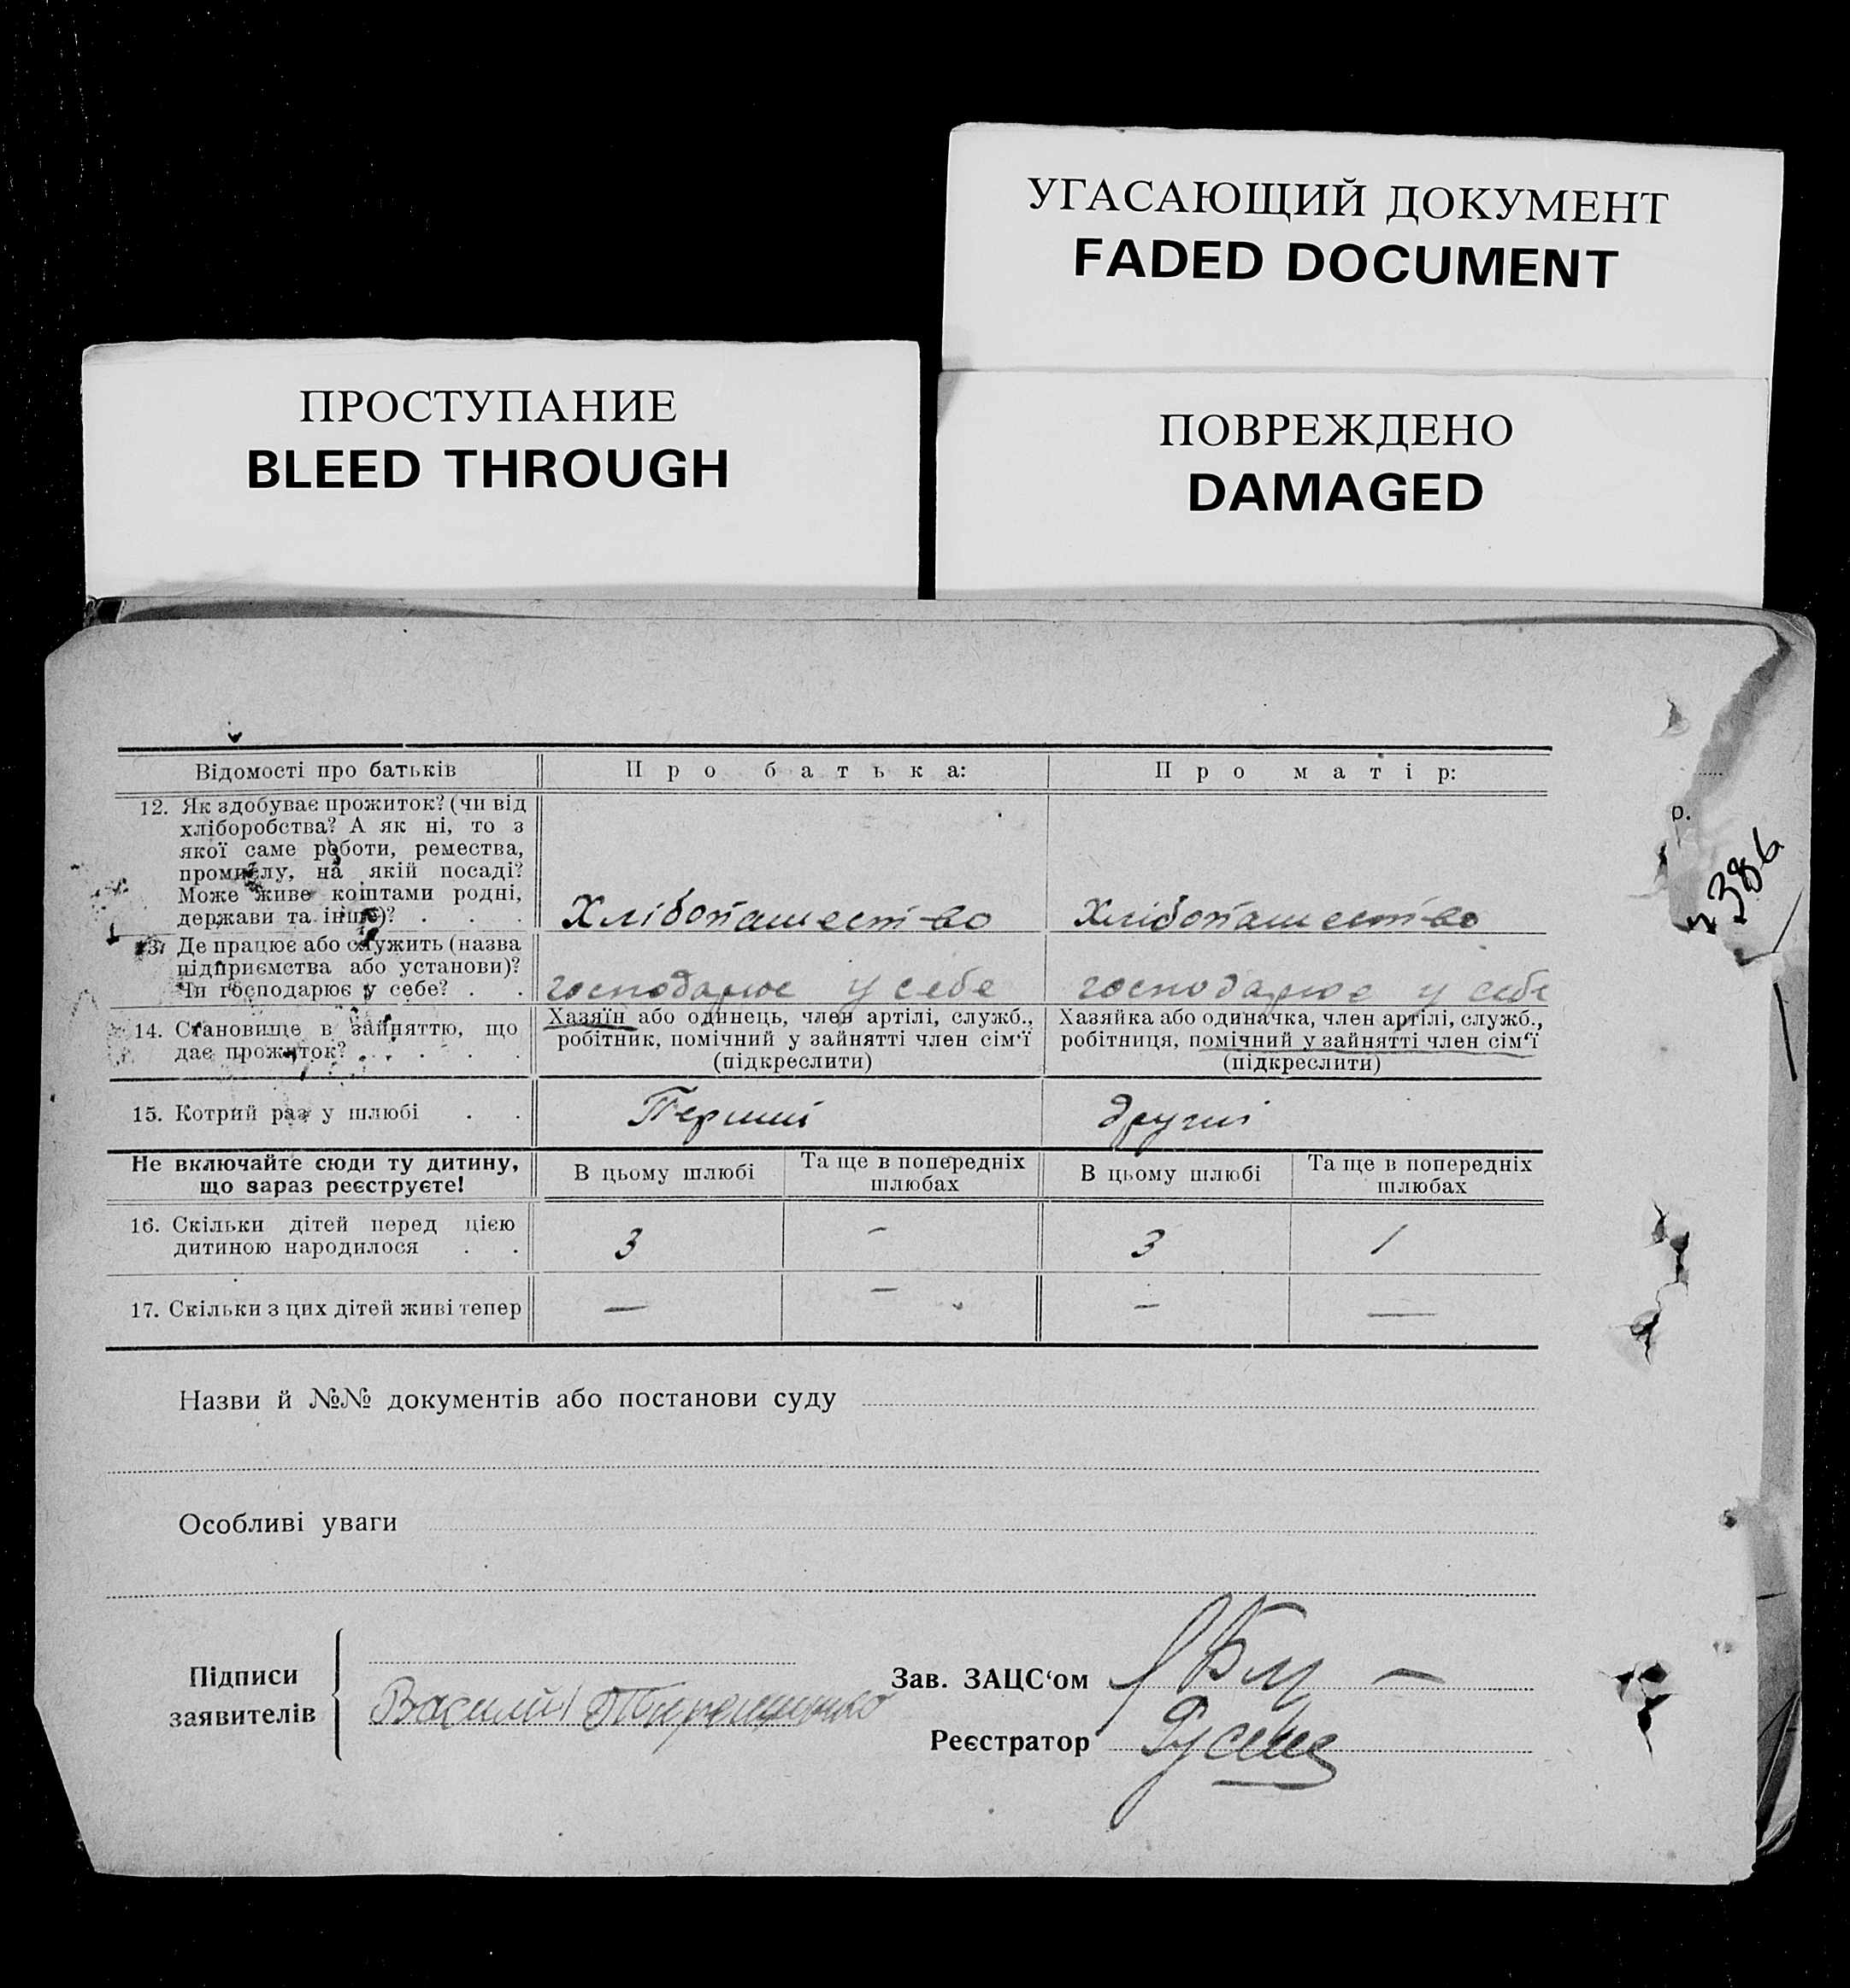 УГАСАЮЩИЙ ДОКУМЕНТ
FADED DOCUMENT
ПРОСТУПАНИЕ
BLEED THROUGH
ПОВРЕЖДЕНО
DAMAGED
Відомості про батьків
Про батька:
Про матір:
12. Як здобуває прожиток? (чи від
хліборобства? А як ні, то з
якої саме роботи, ремества,
промислу, на якій посаді?
Може живе коштами родні,
держави та інше)? . . .
Хлібопашество
Хлібопашество
р.
386
13. Де працює або служить (назва
підприємства або установи)?
Чи господарює у себе? . .
господарює у себе
господарює у себе
14. Становище в зайняттю, що
дає прожиток? . . . . .
Хазяїн або одинець, член артілі, служб.,
робітник, помічний у зайнятті член сім'ї
(підкреслити)
Хазяйка або одиначка, член артілі, служб.,
робітниця, помічний у зайнятті член сім'ї
(підкреслити)
15. Котрий раз у шлюбі . .
Перший
другий
Не включайте сюди ту дитину,
що зараз реєструєте!
В цьому шлюбі
Та ще в попередніх
шлюбах
В цьому шлюбі
Та ще в попередніх
шлюбах
16. Скільки дітей перед цією
дитиною народилося . .
3
-
3
1
17. Скільки з цих дітей живі тепер
—
—
-
—
Назви й №№ документів або постанови суду
Особливі уваги
Підписи
заявителів
Василий
Зав. ЗАЦС'ом
Реєстратор